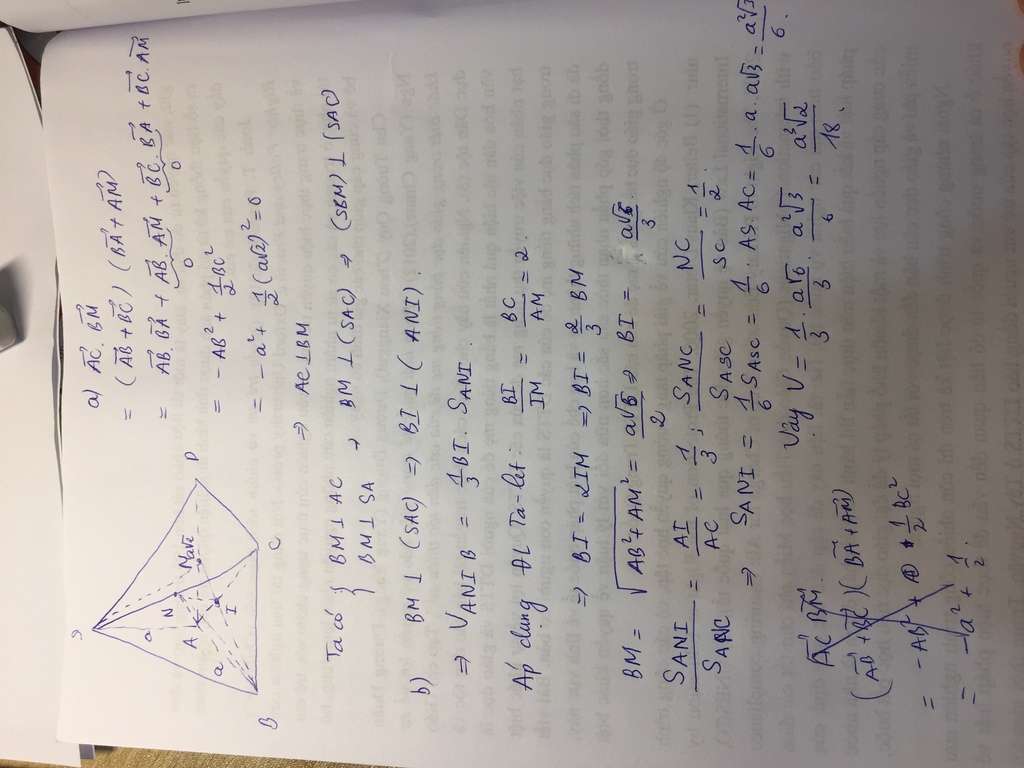 S
a
N
M
a√2
D
A
a
I
B
C
a) AC⃗.BM⃗
= (AB⃗+BC⃗) (BA⃗+AM⃗)
= AB⃗.BA⃗ + AB⃗.AM⃗ + BC⃗.BA⃗ + BC⃗.AM⃗
0 0
= -AB² + 1/2 BC²
= -a² + 1/2 (a√2)² = 0
⇒ AC⊥BM
Ta có { BM⊥AC
BM⊥SA
⇒ BM⊥(SAC) ⇒ (SBM)⊥(SAC)
b) BM⊥(SAC) ⇒ BI⊥(ANI).
⇒ V_ANIB = 1/3 BI. S_ANI.
Áp dụng ĐL Ta-let: BI/IM = BC/AM = 2.
⇒ BI = 2IM ⇒ BI = 2/3 BM
BM = √(AB²+AM²) = a√6/2 ⇒ BI = a√6/3.
S_ANI/S_ANC = AI/AC = 1/3; S_ANC/S_ASC = NC/SC = 1/2.
⇒ S_ANI = 1/6 S_ASC = 1/6 . 1/2 AS.AC = 
Vậy V = 1/3 . a√6/3 . a²√3/6 = a³√2/18.
AC⃗ BM⃗.
(AB⃗+BC⃗)(BA⃗+AM⃗)
= -AB² + 1/2 BC²
= -a² + 1/2.